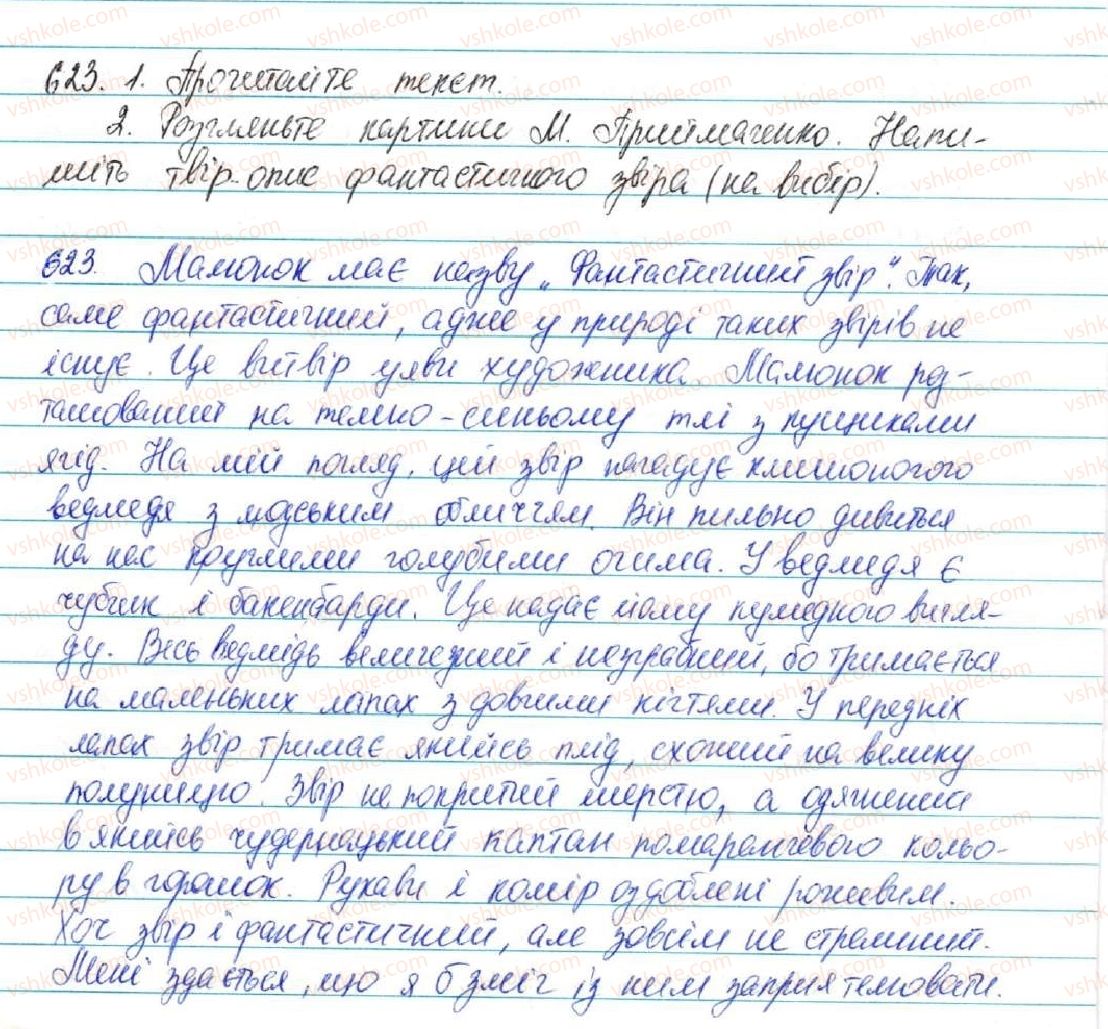 623. 1. Прочитайте текст.
2. Розгляньте картини М. Приймаченко. Напи-
шіть твір-опис фантастичного звіра (на вибір).
623. Малюнок має назву „Фантастичний звір". Так,
саме фантастичний, адже у природі таких звірів не
існує. Це витвір уяви художника. Малюнок роз-
ташований на темно-синьому тлі з пущиками
ягід. На мій погляд, цей звір нагадує клишоногого
ведмедя з людським обличчям. Він пильно дивиться
на нас круглими голубими очима. У ведмедя є
чубчик і бакенбарди. Це надає йому кумедного вигля-
ду. Весь ведмідь величезний і незграбний, бо тримається
на маленьких лапах з довгими кігтями. У передніх
лапах звір тримає якийсь плід, схожий на велику
полуницю. Звір не покритий шерстю, а одягнений
в якийсь чудернацький каптан помаранчевого кольо-
ру в горошок. Рукави і комір оздоблені рожевим.
Хоч звір і фантастичний, але зовсім не страшний.
Мені здається, що я б зміг із ним заприятелювати.
vshkole.com